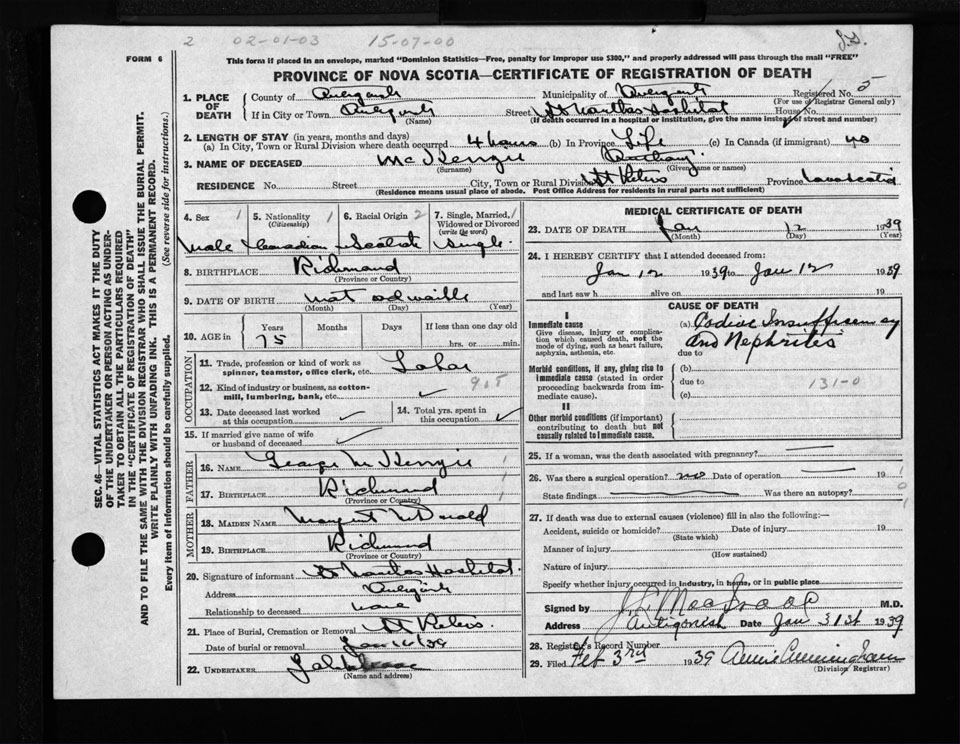 2 02-01-03 15-07-00
FORM 6
This form if placed in an envelope, marked "Dominion Statistics—Free, penalty for improper use $300," and properly addressed will pass through the mail "FREE"
PROVINCE OF NOVA SCOTIA—CERTIFICATE OF REGISTRATION OF DEATH
SEC. 46—VITAL STATISTICS ACT MAKES IT THE DUTY
OF THE UNDERTAKER OR PERSON ACTING AS UNDER-
TAKER TO OBTAIN ALL THE PARTICULARS REQUIRED
IN THE "CERTIFICATE OF REGISTRATION OF DEATH"
AND TO FILE THE SAME WITH THE DIVISION REGISTRAR WHO SHALL ISSUE THE BURIAL PERMIT.
WRITE PLAINLY WITH UNFADING INK. THIS IS A PERMANENT RECORD.
Every item of information should be carefully supplied. (See reverse side for instructions.)
1. PLACE OF DEATH
County of Municipality of Registered No. 5
(For use of Registrar General only)
If in City or Town Street House No.
(Name) (If death occurred in a hospital or institution, give the name instead of street and number)
2. LENGTH OF STAY (in years, months and days)
(a) In City, Town or Rural Division where death occurred 4 hours (b) In Province Life (c) In Canada (if immigrant) no
3. NAME OF DECEASED McKenzie
(Surname) (Given name or names)
RESIDENCE No. Street City, Town or Rural Division St Peters Province Nova Scotia
(Residence means usual place of abode. Post Office Address for residents in rural parts not sufficient)
4. Sex 1 5. Nationality 1 (Citizenship) 6. Racial Origin 2 7. Single, Married, Widowed or Divorced (write the word) 1
Male Canadian Scotch Single
8. BIRTHPLACE Richmond
(Province or Country)
9. DATE OF BIRTH
(Month) (Day) (Year)
10. AGE in Years Months Days If less than one day old
75 hrs. or min.
OCCUPATION
11. Trade, profession or kind of work as spinner, teamster, office clerk, etc. Labor
12. Kind of industry or business, as cotton-mill, lumbering, bank, etc. 905
13. Date deceased last worked at this occupation
14. Total yrs. spent in this occupation
15. If married give name of wife or husband of deceased
FATHER
16. NAME George McKenzie 1
17. BIRTHPLACE Richmond 1
(Province or Country)
MOTHER
18. MAIDEN NAME Margaret McDonald
19. BIRTHPLACE Richmond
(Province or Country)
20. Signature of informant St Marthas Hospital
Address
Relationship to deceased none
21. Place of Burial, Cremation or Removal St Peters
Date of burial or removal
22. UNDERTAKER
MEDICAL CERTIFICATE OF DEATH
23. DATE OF DEATH Jan 12 1939
(Month) (Day) (Year)
24. I HEREBY CERTIFY that I attended deceased from:
Jan 12 1939 to Jan 12 1939
and last saw h alive on 19
CAUSE OF DEATH
I
Immediate cause
Give disease, injury or complication which caused death, not the mode of dying, such as heart failure, asphyxia, asthenia, etc.
(a) Codiac Insufficiency
and Nephrites
due to
Morbid conditions, if any, giving rise to immediate cause (stated in order proceeding backwards from immediate cause).
(b)
due to 131-0
(c)
II
Other morbid conditions (if important) contributing to death but not causally related to immediate cause.
25. If a woman, was the death associated with pregnancy?
26. Was there a surgical operation? no Date of operation 19
State findings Was there an autopsy?
27. If death was due to external causes (violence) fill in also the following:—
Accident, suicide or homicide? Date of injury 19
(State which)
Manner of injury
(How sustained)
Nature of injury
Specify whether injury occurred in industry, in home, or in public place
Signed by M.D.
Address Antigonish Date Jan 31st 1939
28. Registrar's Record Number
29. Filed Feb 3rd 1939 Annie Cunningham
(Division Registrar)